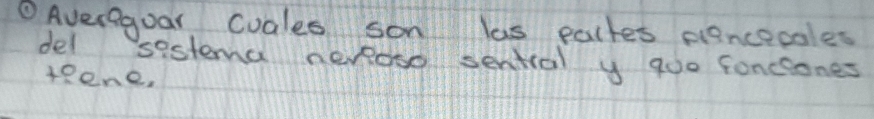 ① Averiguar cuales son las partes principales
del sistema nervioso sentral y que funciones
tiene.